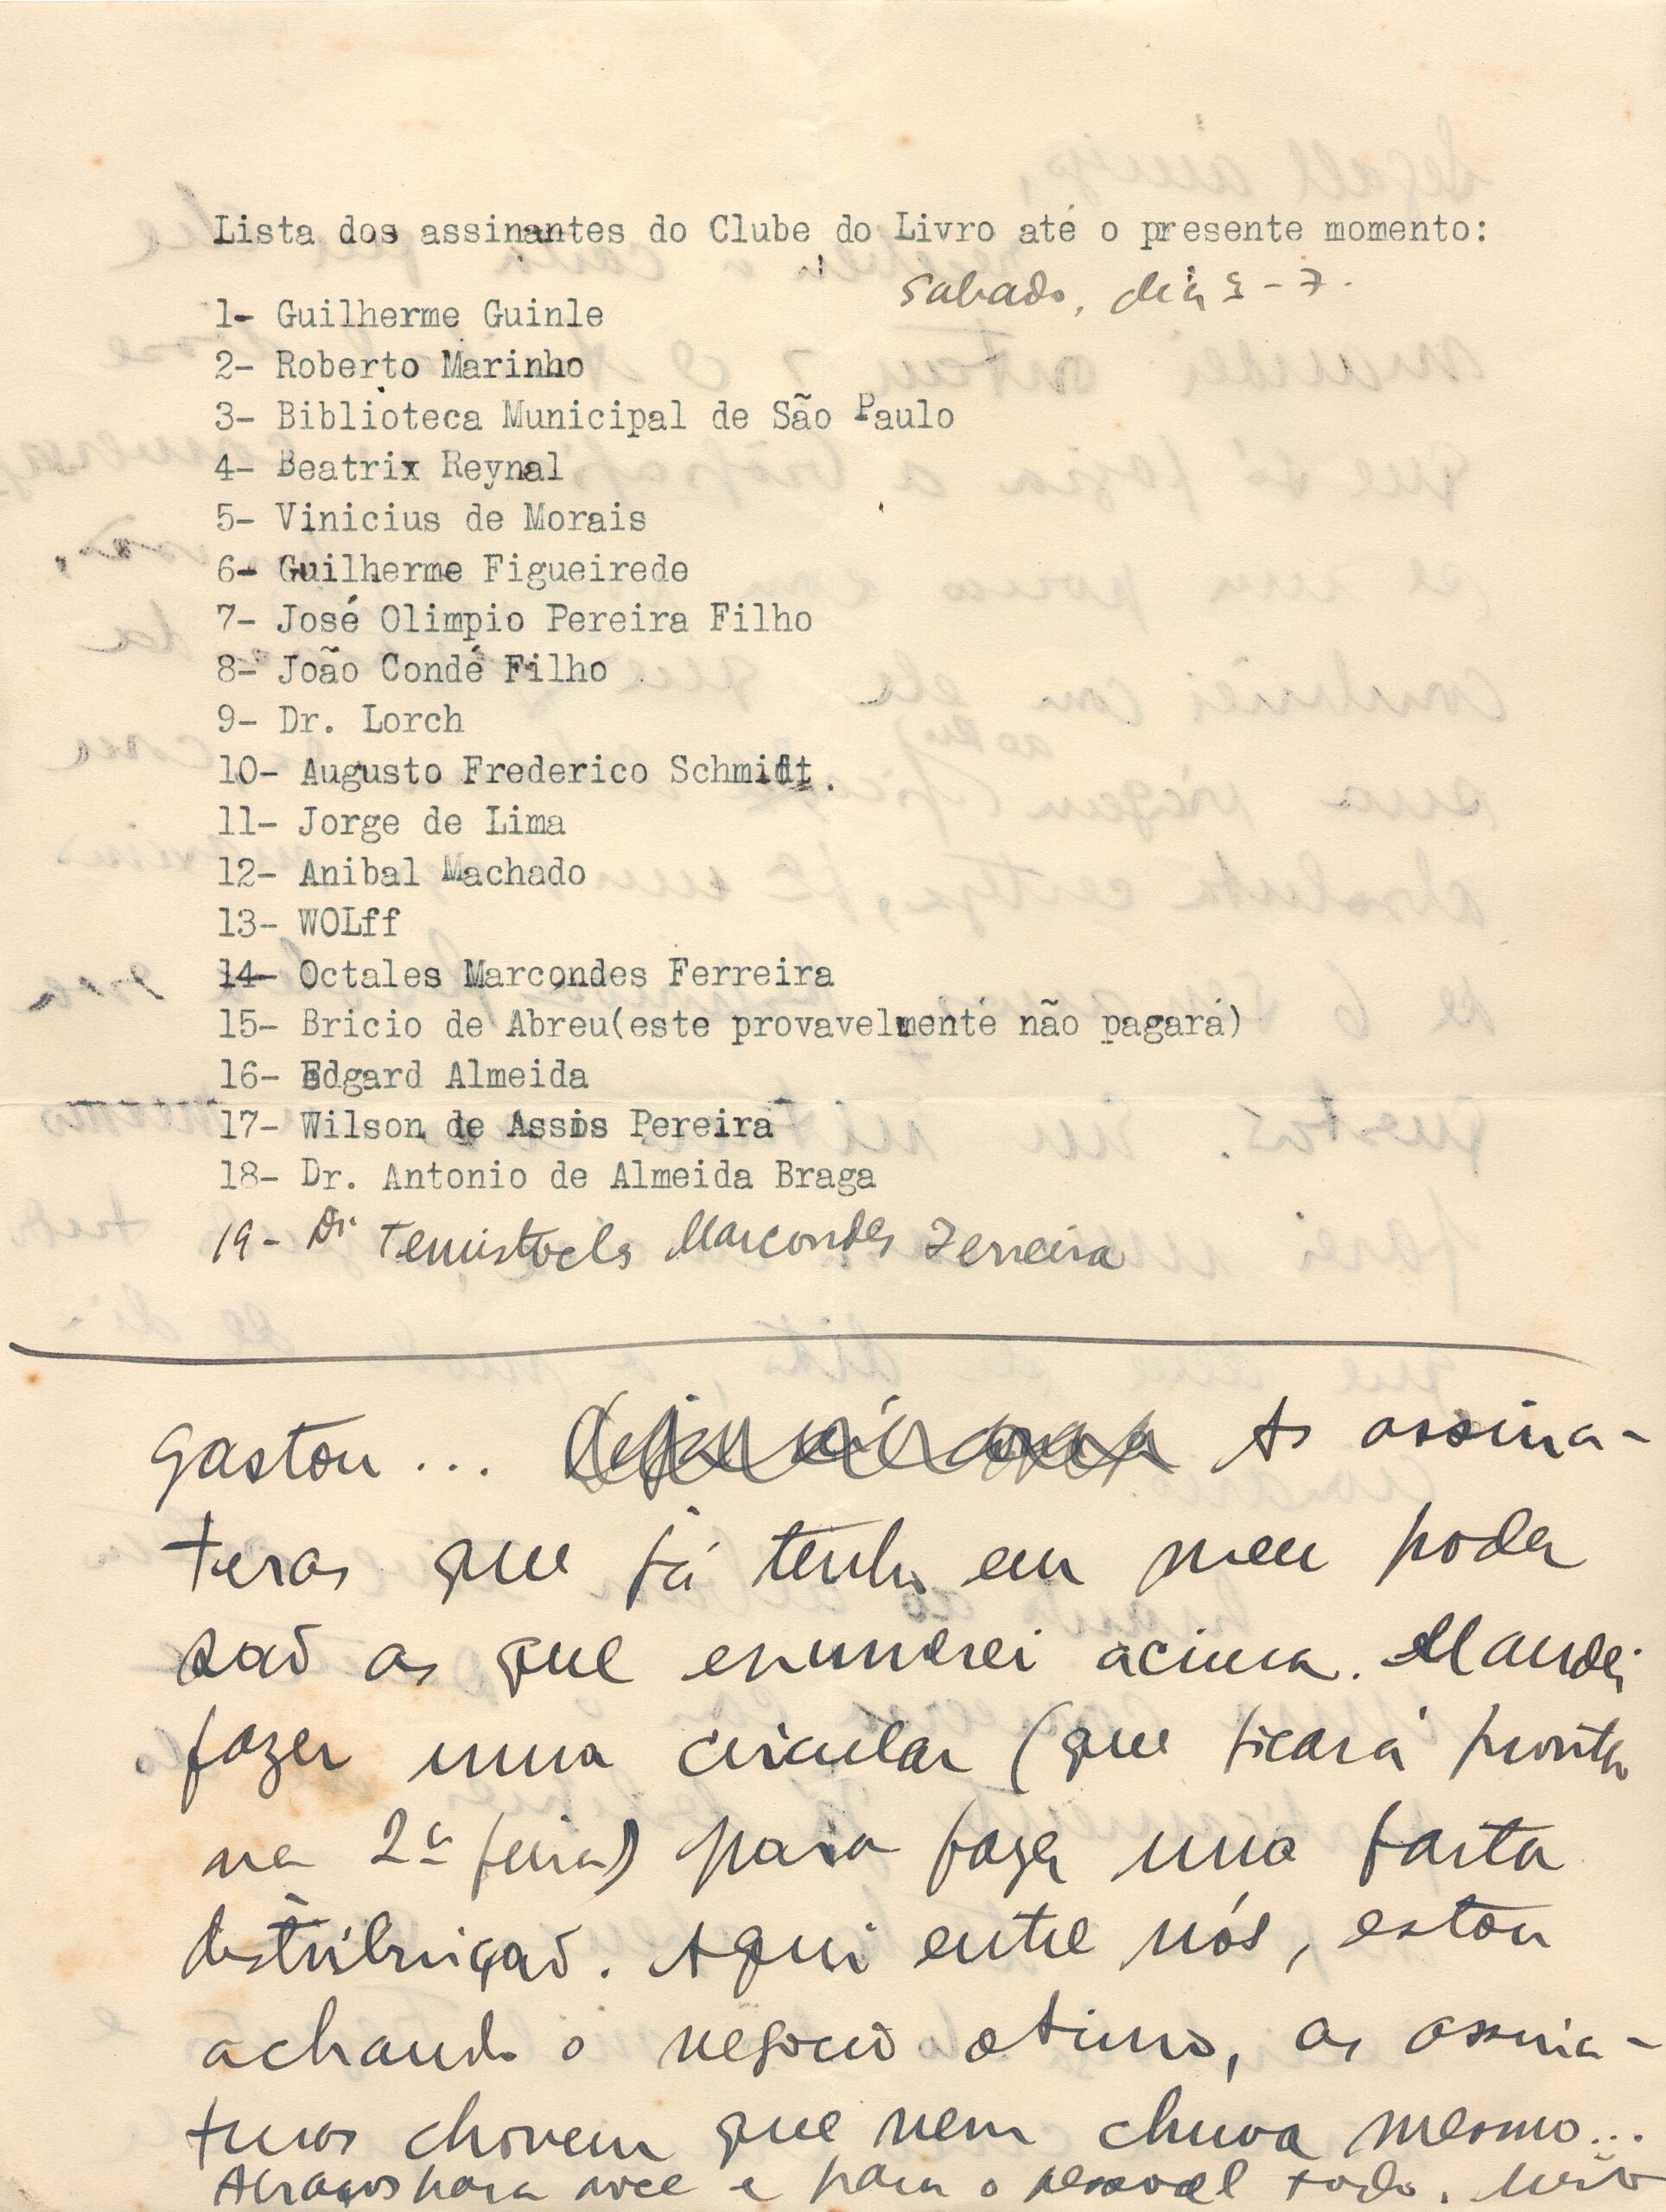 Lista dos assinantes do Clube do Livro até o presente momento:
Sabado, dia 3-7.
1- Guilherme Guinle
2- Roberto Marinho
3- Biblioteca Municipal de São Paulo
4- Beatrix Reynal
5- Vinicius de Morais
6- Guilherme Figueirede
7- José Olimpio Pereira Filho
8- João Condé Filho
9- Dr. Lorch
10- Augusto Frederico Schmidt.
11- Jorge de Lima
12- Anibal Machado
13- WOLff
14- Octales Marcondes Ferreira
15- Bricio de Abreu(este provavelmente não pagará)
16- Edgard Almeida
17- Wilson de Assis Pereira
18- Dr. Antonio de Almeida Braga
19- Dr Temistocles Marcondes Ferreira
Gaston... As assina-
turas que já tenho em meu poder
são as que enumerei acima. Mandei
fazer uma circular (que ficará pronta
na 2ª feira) para fazer uma farta
distribuição. Aqui entre nós, estou
achando o negocio otimo, as assina-
turas chovem que nem chuva mesmo...
Abraços para voce e para o pessoal todo.